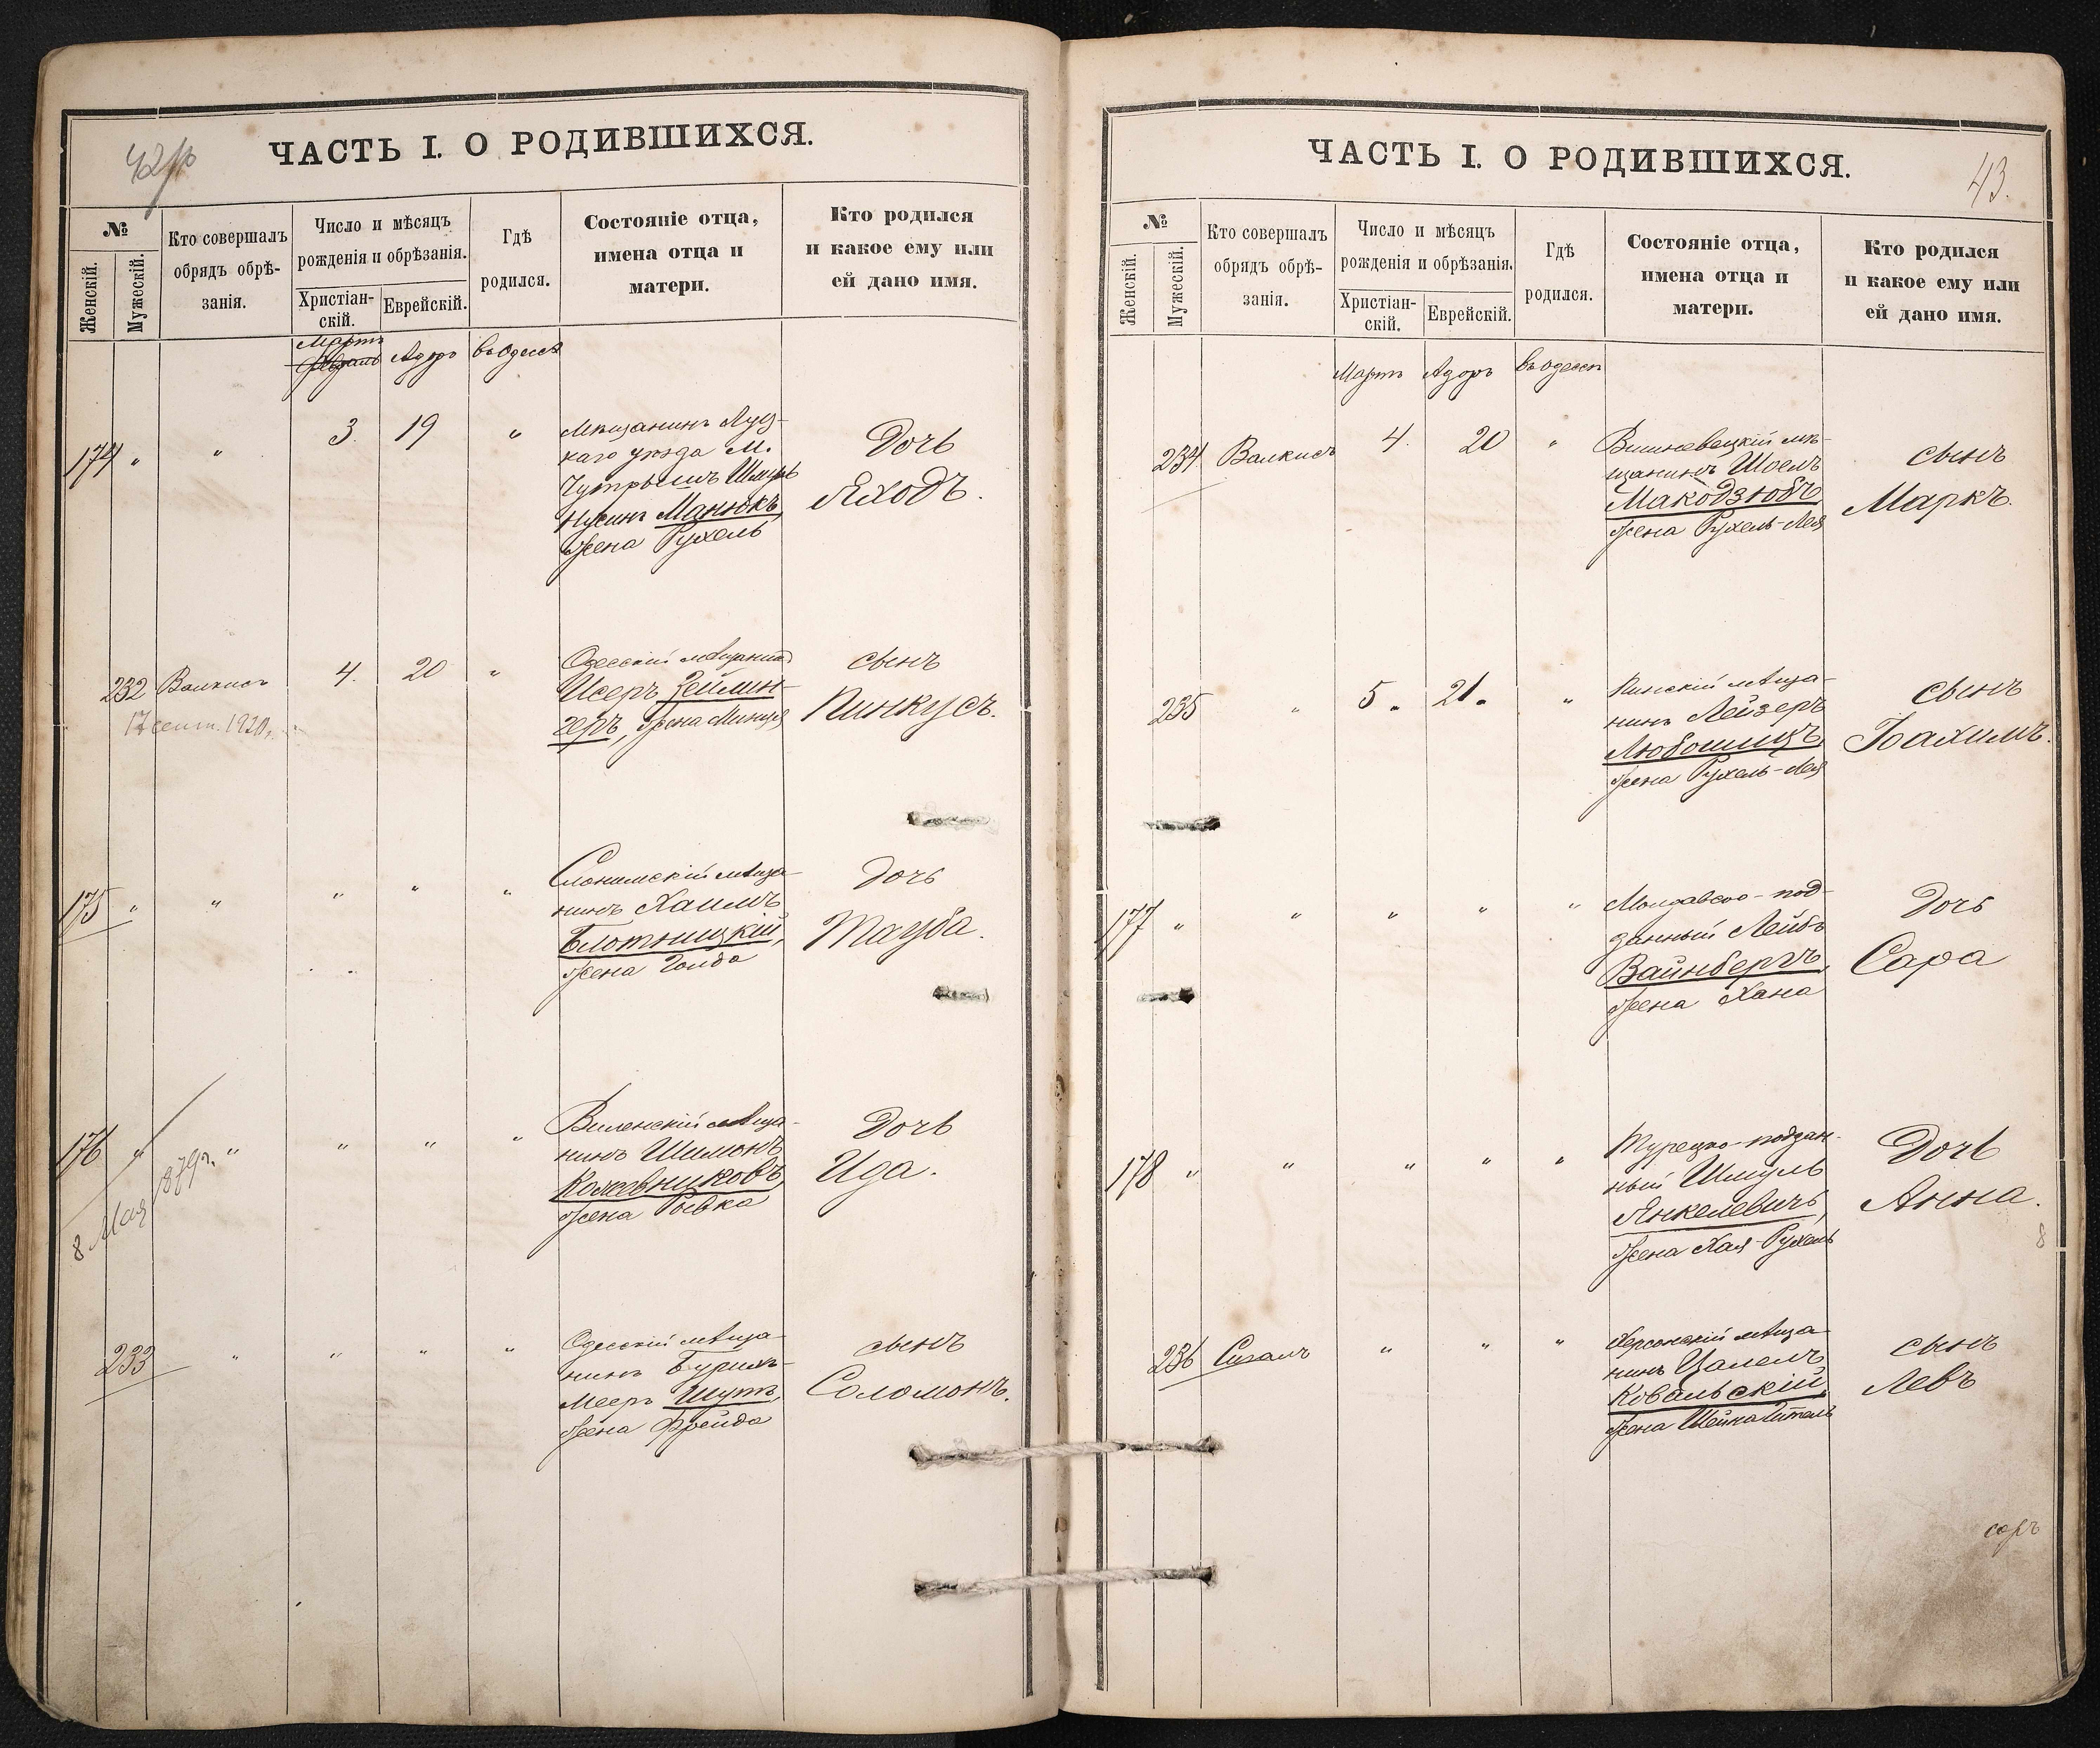 ЧАСТЬ I. О РОДИВШИХСЯ.
№
Женскій.
Мужескій.
Кто совершалъ
обрядъ обрѣ-
занія.
Число и мѣсяцъ
рожденія и обрѣзанія.
Христіан-
скій.
Еврейскій.
Гдѣ
родился.
Состояніе отца,
имена отца и
матери.
Кто родился
и какое ему или
ей дано имя.
Мартъ
Адоръ
въ Одессѣ
174 " " 3. 19 "
Мѣщанинъ Луц-
каго уѣзда М.
Нусинъ Манюкъ,
жена Рухель
Дочь
Яходъ.
232 Валкисъ 4. 20 "
17 сент. 1920 г.
Одесскій мѣщанинъ
Исеръ Цейлин-
геръ, жена Минця
сынъ
Пинкусъ.
175 " " " " "
Слонимскій мѣща-
нинъ Хаимъ
Блотницкій,
жена Голда
Дочь
Тауба.
176 " " " " "
8 Мая 1879 г.
Виленскій мѣща-
нинъ Шимонъ
Кожевниковъ,
жена Ривка
Дочь
Ида.
233 " " " "
Одесскій мѣща-
нинъ
Мееръ Шутъ,
жена Фрейда
сынъ
Соломонъ.
ЧАСТЬ I. О РОДИВШИХСЯ.
43.
№
Женскій.
Мужескій.
Кто совершалъ
обрядъ обрѣ-
занія.
Число и мѣсяцъ
рожденія и обрѣзанія.
Христіан-
скій.
Еврейскій.
Гдѣ
родился.
Состояніе отца,
имена отца и
матери.
Кто родился
и какое ему или
ей дано имя.
Мартъ
Адоръ
въ Одессѣ
234 Валкисъ 4. 20 "
Вишневецкій мѣ-
щанинъ Шоелъ
Макодзюбъ,
жена Рухель-Лея
сынъ
Маркъ.
235 " 5. 21. "
Пинскій мѣща-
нинъ Лейзеръ
Любошицъ,
жена Рухель-Лея
сынъ
Іоахимъ.
177 " " " " "
Молдавско-под-
данный Лейбъ
Вайнбергъ,
жена Хана
Дочь
Сара
178 " " " " "
Турецко-поддан-
ный Шмуль
Янкелевичъ,
жена Хая-Рухель
Дочь
Анна.
236 Сигалъ " " "
Херсонскій мѣща-
нинъ Цалелъ
Ковальскій,
жена Шейна Гитель
сынъ
Левъ